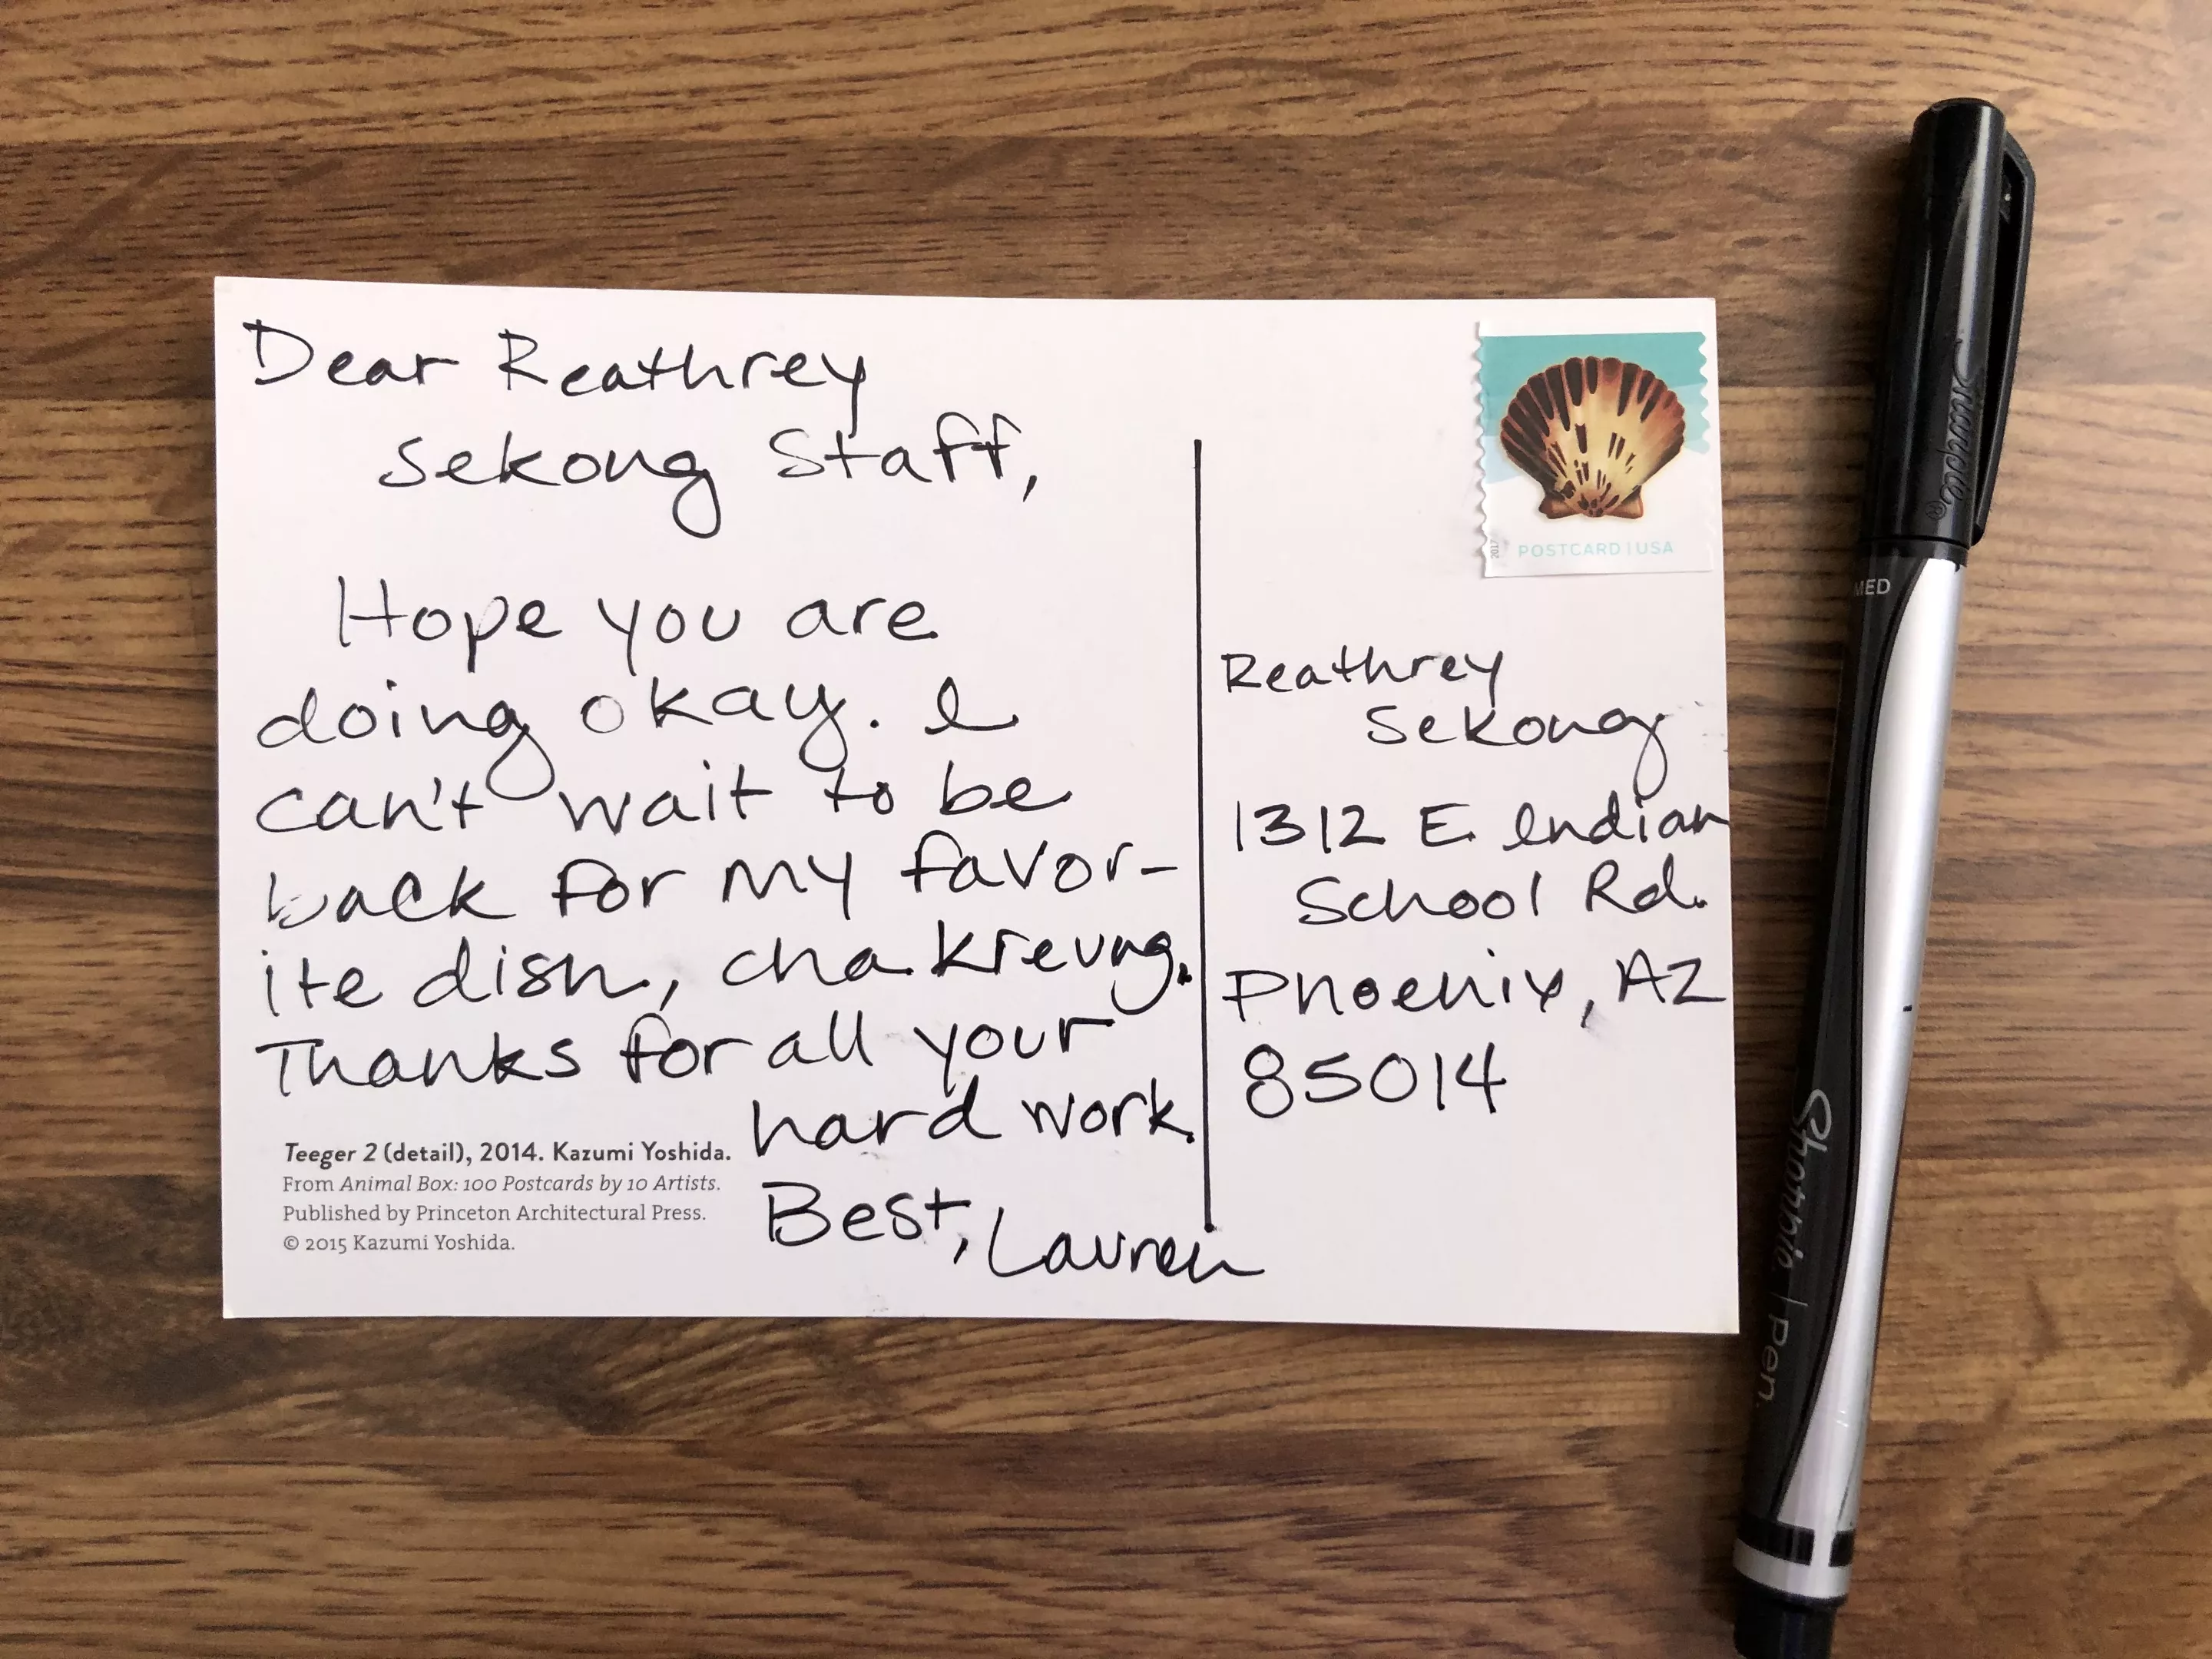 Dear Reathrey
Sekong Staff,
Hope you are
doing okay. I
can't wait to be
back for my favor-
ite dish, cha kreung.
Thanks for all your
hard work.
Best, Lauren
Teeger 2 (detail), 2014. Kazumi Yoshida.
From Animal Box: 100 Postcards by 10 Artists.
Published by Princeton Architectural Press.
© 2015 Kazumi Yoshida.
2017
POSTCARD | USA
Reathrey
Sekong
1312 E. Indian
School Rd.
Phoenix, AZ
85014
Sharpie®
MED
Sharpie. | Pen.